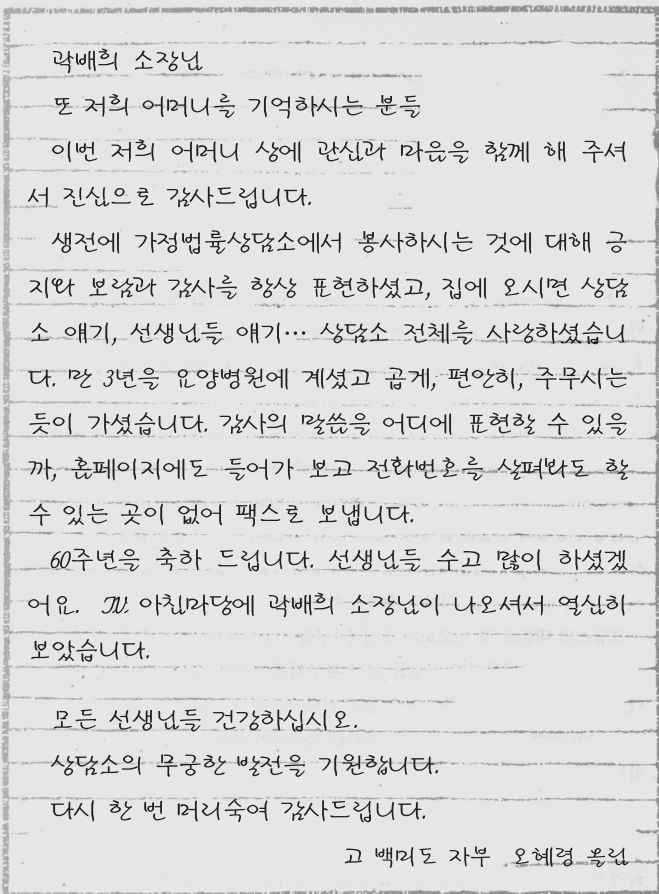 곽배희 소장님
또 저희 어머니를 기억하시는 분들
이번 저희 어머니 상에 관심과 마음을 함께 해 주셔
서 진심으로 감사드립니다.
생전에 가정법률상담소에서 봉사하시는 것에 대해 긍
지와 보람과 감사를 항상 표현하셨고, 집에 오시면 상담
소 얘기, 선생님들 얘기… 상담소 전체를 사랑하셨습니
다. 만 3년을 요양병원에 계셨고 곱게, 편안히, 주무시는
듯이 가셨습니다. 감사의 말씀을 어디에 표현할 수 있을
까, 홈페이지에도 들어가 보고 전화번호를 살펴봐도 할
수 있는 곳이 없어 팩스로 보냅니다.
60주년을 축하 드립니다. 선생님들 수고 많이 하셨겠
어요. TV. 아침마당에 곽배희 소장님이 나오셔서 열심히
보았습니다.
모든 선생님들 건강하십시오.
상담소의 무궁한 발전을 기원합니다.
다시 한 번 머리숙여 감사드립니다.
고 백미도 자부 오혜령 올림